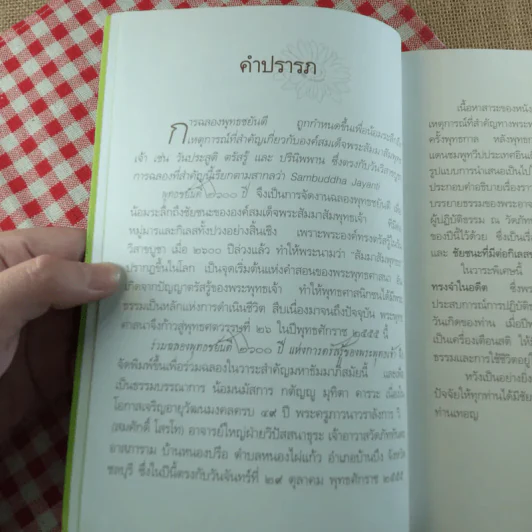 คำปรารภ
การฉลองพุทธชยันตี ถูกกำหนดขึ้นเพื่อน้อมระลึกถึง
เหตุการณ์ที่สำคัญเกี่ยวกับองค์สมเด็จพระสัมมาสัมพุทธ
เจ้า เช่น วันประสูติ ตรัสรู้ และ ปรินิพพาน ซึ่งตรงกับวันวิสาขบูชา
การฉลองที่สำคัญนี้เรียกตามสากลว่า Sambuddha Jayanti
พุทธชยันตี ๒๖๐๐ ปี จึงเป็นการจัดงานฉลองพุทธชยันตี เพื่อ
น้อมระลึกถึงชัยชนะขององค์สมเด็จพระสัมมาสัมพุทธเจ้า ที่มีต่อ
หมู่มารและกิเลสทั้งปวงอย่างสิ้นเชิง เพราะพระองค์ทรงตรัสรู้ใน
วิสาขบูชา เมื่อ ๒๖๐๐ ปีล่วงแล้ว ทำให้พระนามว่า "สัมมาสัมพุทธ
ปรากฏขึ้นในโลก เป็นจุดเริ่มต้นแห่งคำสอนของพระพุทธศาสนา อัน
เกิดจากปัญญาตรัสรู้ของพระพุทธเจ้า ทำให้พุทธศาสนิกชนได้มีพระ
ธรรมเป็นหลักแห่งการดำเนินชีวิต สืบเนื่องมาจนถึงปัจจุบัน พระพุทธ
ศาสนาจึงก้าวสู่พุทธศตวรรษที่ ๒๖ ในปีพุทธศักราช ๒๕๕๕ นี้
ร่วมฉลองพุทธชยันตี ๒๖๐๐ ปี แห่งการตรัสรู้ของพระพุทธเจ้า
จัดพิมพ์ขึ้นเพื่อร่วมฉลองในวาระสำคัญมหาธัมมาภิสมัยนี้ และเพื่อ
เป็นธรรมบรรณาการ น้อมนมัสการ กตัญญู มุทิตา คารวะ เนื่องใน
โอกาสเจริญอายุวัฒนมงคลครบ ๔๙ ปี พระครูภาวนาวราลังการ วิ.
(สมศักดิ์ โสรโท) อาจารย์ใหญ่ฝ่ายวิปัสสนาธุระ เจ้าอาวาสวัดภัททันตะ
อาสภาราม บ้านหนองปรือ ตำบลหนองไผ่แก้ว อำเภอบ้านบึง จังหวัด
ชลบุรี ซึ่งในปีนี้ตรงกับวันจันทร์ที่ ๒๙ ตุลาคม พุทธศักราช ๒๕๕๕
เนื้อหาสาระของหนัง
เหตุการณ์ที่สำคัญของพระ
ครั้งพุทธกาล หลังพุทธ
แดนชมพูทวีปประเทศอินเดีย
รูปแบบการนำเสนอเป็นไป
ประกอบคำอธิบายเรื่องรา
บรรยายธรรมของพระอาจ
ผู้ปฏิบัติธรรม ณ วัดภัท
ของปีนี้ไว้ด้วย ซึ่งเป็นกา
และ ชัยชนะที่มีต่อกิเลสข
ในวาระพิเศษนี้
ทรงจำในอดีต ซึ่งพระ
ประสบการณ์การปฏิบัติธ
วันเกิดของท่าน เมื่อปี
เป็นเครื่องเตือนสติ ให้
ธรรมและการใช้ชีวิตอยู่
หวังเป็นอย่างยิ่ง
ปัจจัยให้ทุกท่านได้มีดว
ท่านเทอญ